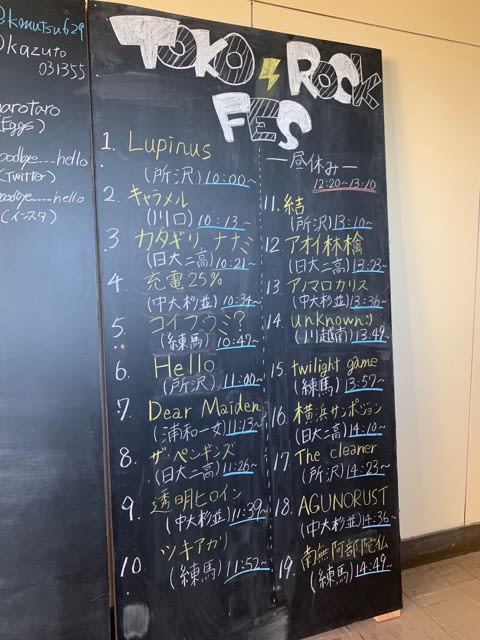 @kamutsu629
@kazuto
031355
narotaro
(Eggs)
goodbye....hello
(Twitter)
goodbye....hello
(インスタ)
TOKO ROCK
FES
1. Lupinus
(所沢) 10:00~
2. キャラメル
(川口) 10:13~
3 カタギリ ナナミ
(日大二高) 10:21~
4. 充電25%
(中大杉並) 10:34~
5. コイフウミ?
(練馬) 10:47~
6. Hello
(所沢) 11:00~
7. Dear Maiden
(浦和一女) 11:13~
8. ザ・ペンギンズ
(日大二高) 11:26~
9. 透明ヒロイン
(中大杉並) 11:39~
10. ツキアカリ
(練馬) 11:52~
ー昼休みー
12:20~13:10
11. 結
(所沢) 13:10~
12. アオイ林檎
(日大二高) 13:23~
13 アノマロカリス
(中大杉並) 13:36~
14. unknown:)
(川越南) 13:49
15. twilight game
(練馬) 13:57~
16. 横浜サンポジョン
(日大二高) 14:10~
17. The cleaner
(所沢) 14:23~
18. AGUNORUST
(中大杉並) 14:36~
19. 南無阿部陀仏
(練馬) 14:49~